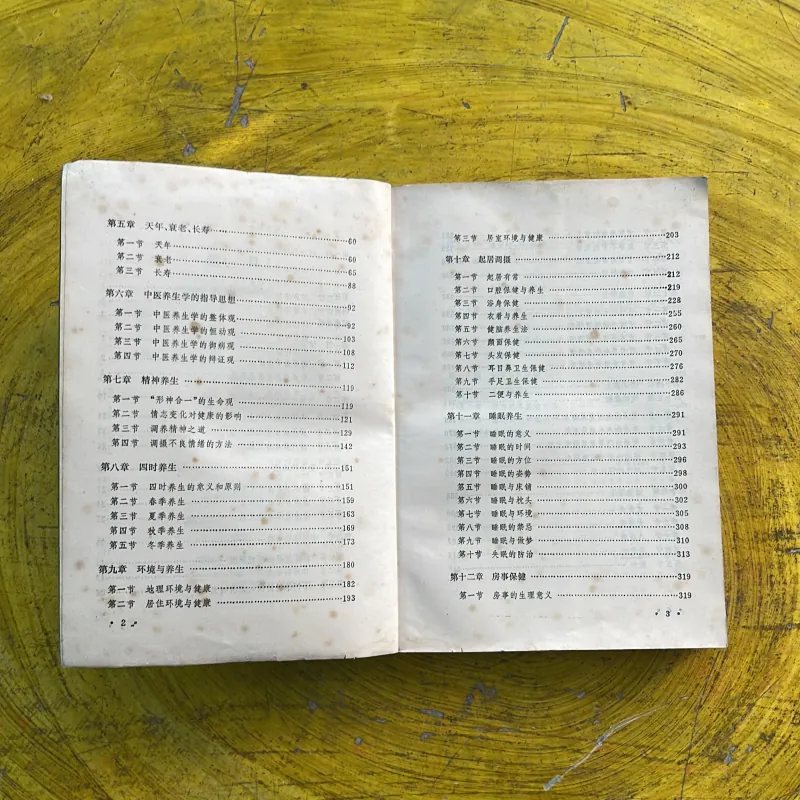 第五章 天年、衰老、长寿……60
第一节 天年……60
第二节 衰老……65
第三节 长寿……88
第六章 中医养生学的指导思想……92
第一节 中医养生学的整体观……92
第二节 中医养生学的恒动观……103
第三节 中医养生学的御病观……108
第四节 中医养生学的辩证观……112
第七章 精神养生……119
第一节 “形神合一”的生命观……119
第二节 情志变化对健康的影响……121
第三节 调养精神之道……129
第四节 调摄不良情绪的方法……142
第八章 四时养生……151
第一节 四时养生的意义和原则……151
第二节 春季养生……159
第三节 夏季养生……163
第四节 秋季养生……169
第五节 冬季养生……173
第九章 环境与养生……180
第一节 地理环境与健康……182
第二节 居住环境与健康……193
• 2 •
第三节 居室环境与健康……203
第十章 起居调摄……212
第一节 起居有常……212
第二节 口腔保健与养生……219
第三节 浴身保健……228
第四节 衣着与养生……255
第五节 健脑养生法……260
第六节 颜面保健……265
第七节 头发保健……270
第八节 耳目鼻卫生保健……276
第九节 手足卫生保健……282
第十节 二便与养生……286
第十一章 睡眠养生……291
第一节 睡眠的意义……291
第二节 睡眠的时间……293
第三节 睡眠的方位……296
第四节 睡眠的姿势……298
第五节 睡眠与床铺……300
第六节 睡眠与枕头……302
第七节 睡眠与环境……305
第八节 睡眠的禁忌……308
第九节 睡眠与做梦……310
第十节 失眠的防治……313
第十二章 房事保健……319
第一节 房事的生理意义……319
• 3 •